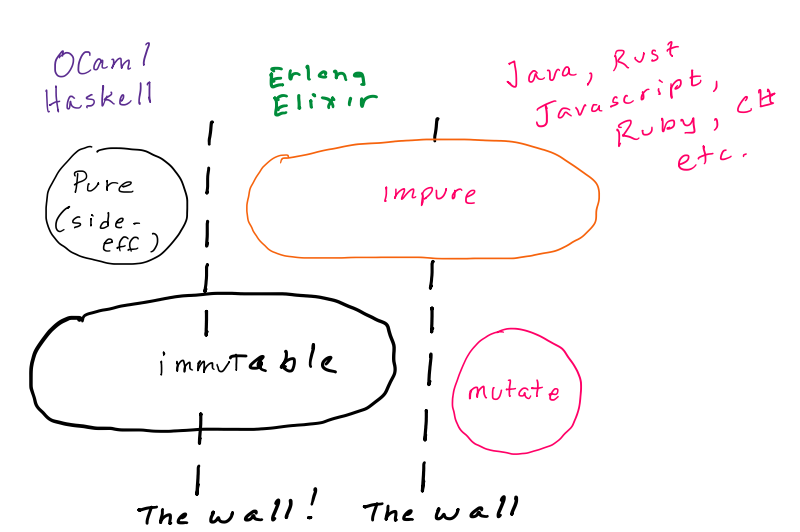 OCaml
Haskell
Erlang
Elixir
Java, Rust
Javascript,
Ruby, C#
etc.
Pure
(side-
eff)
impure
immutable
mutate
The wall!
The wall